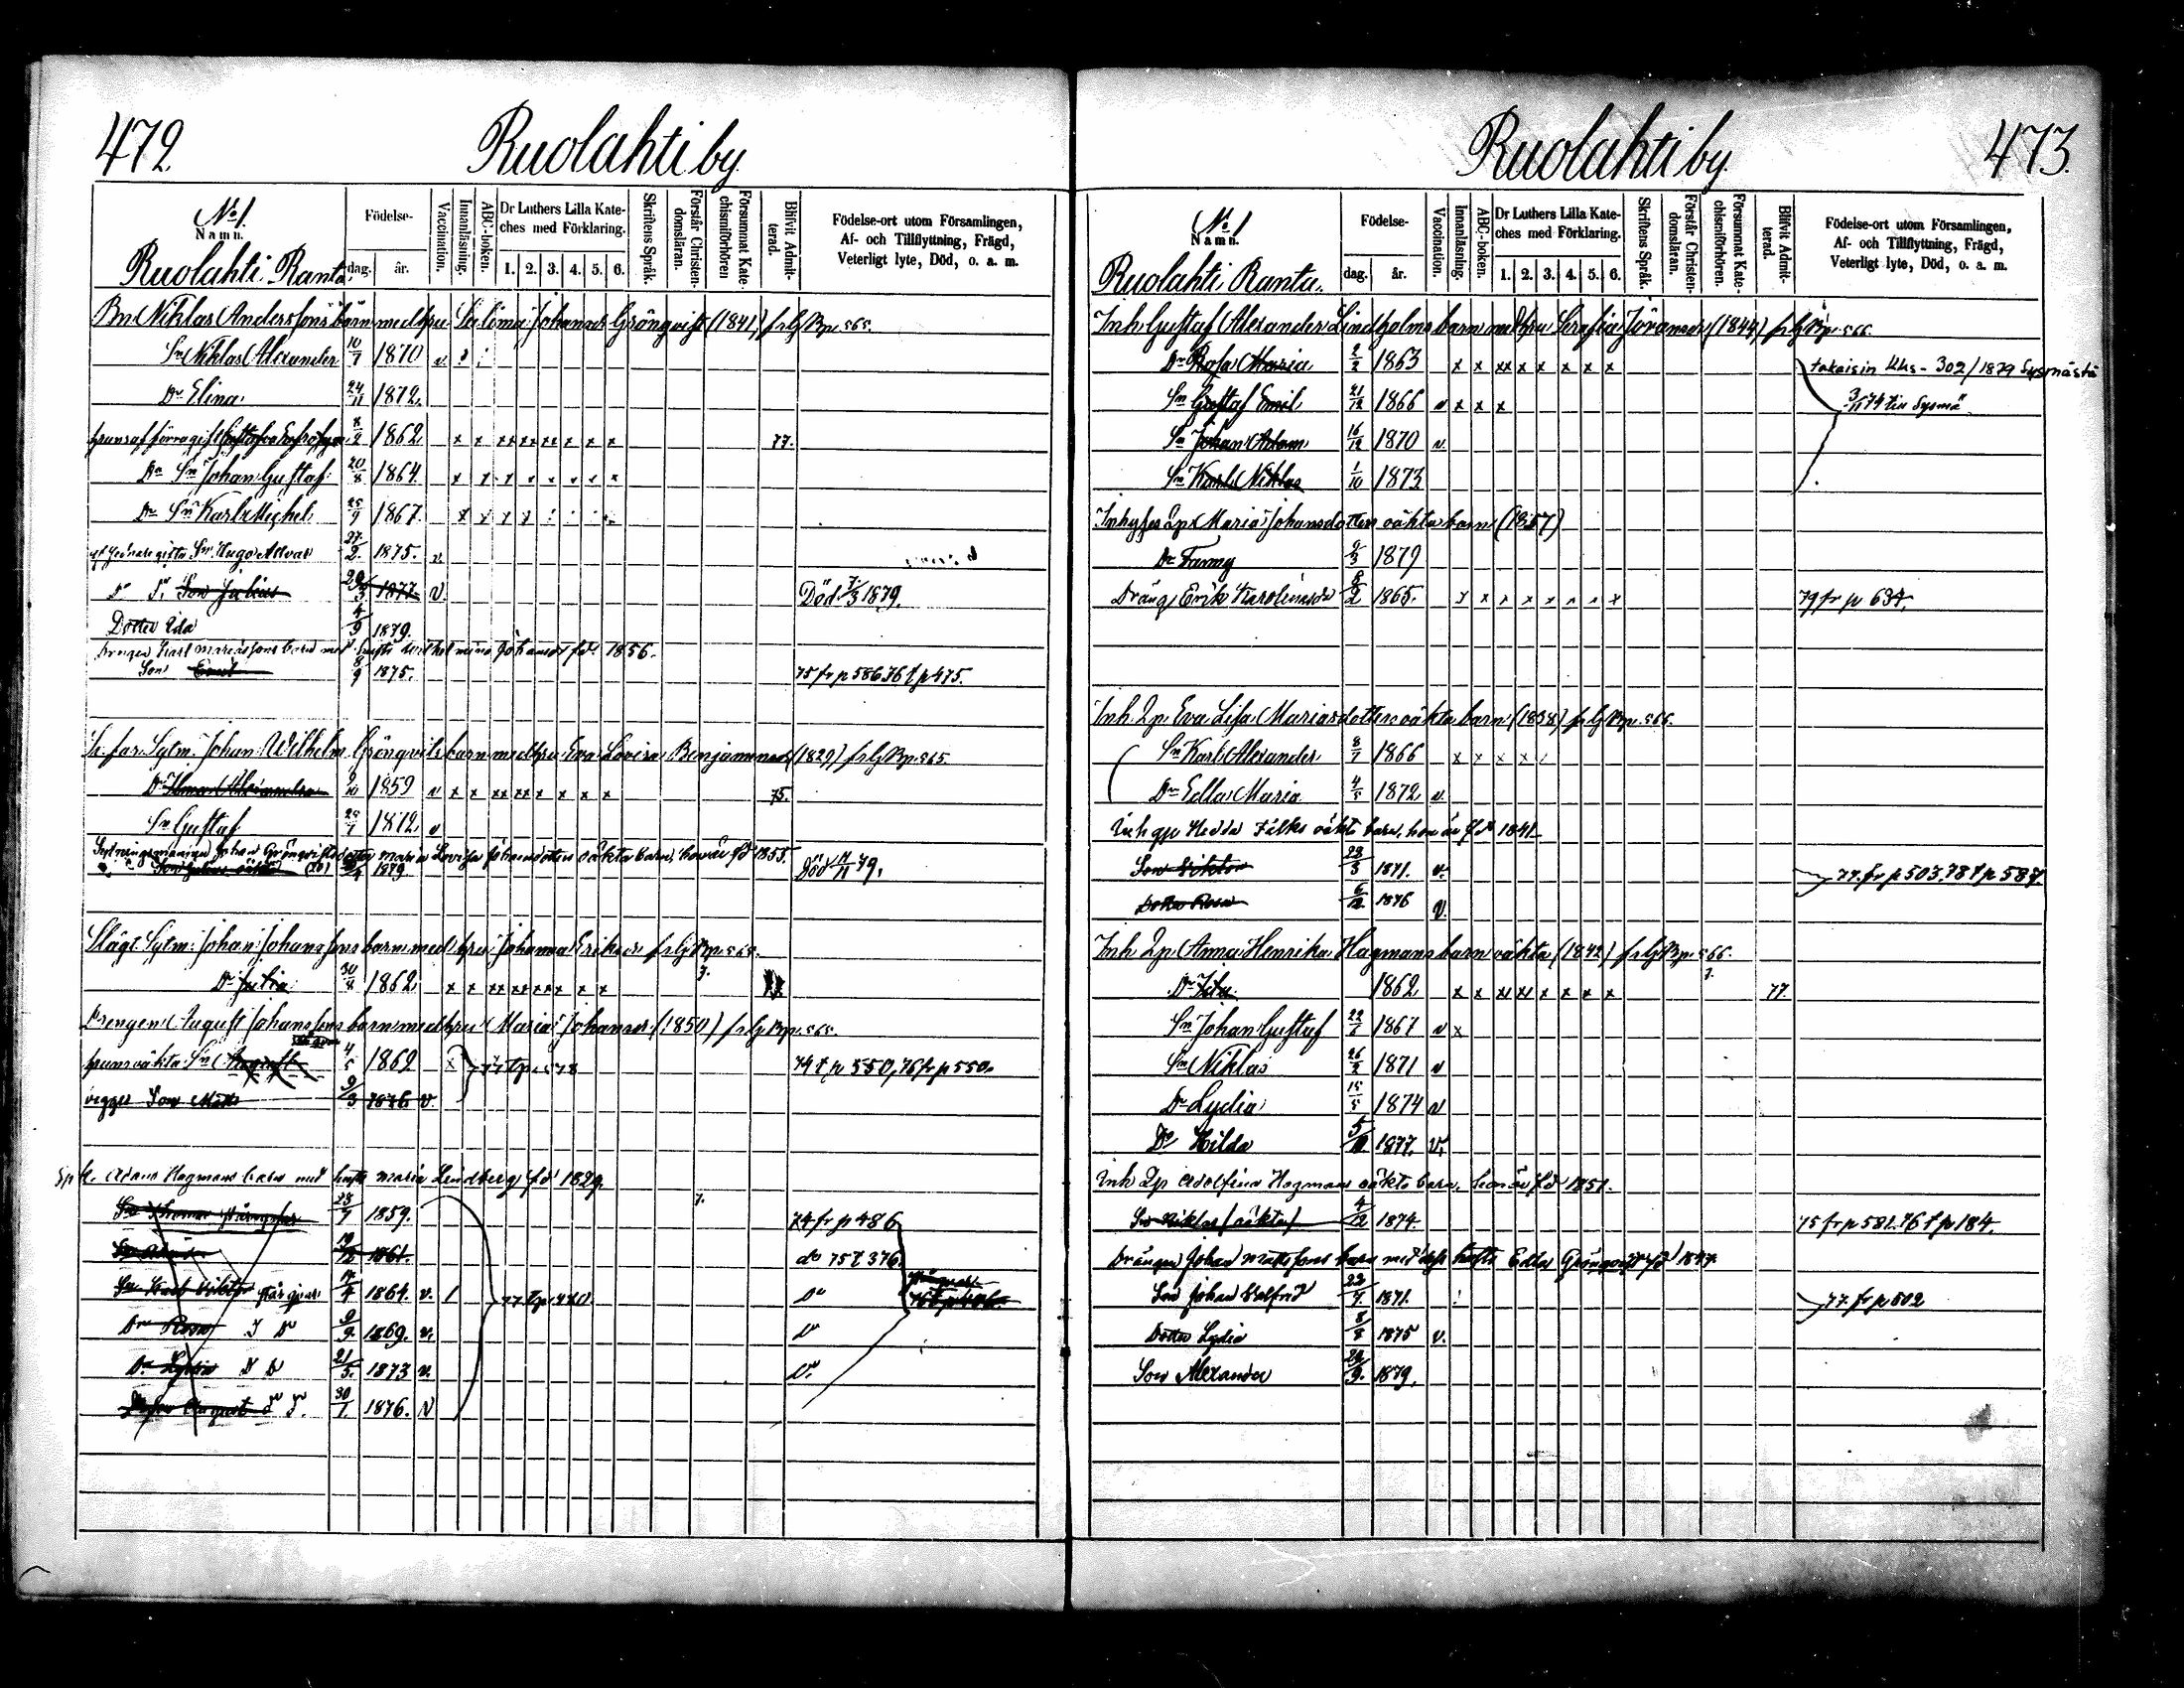 472.
Ruolahti by.
No 1.
Namn.
Ruolahti Ranta.
Födelse-
dag.
år.
Vaccination.
Innanläsning.
ABC-boken.
Dr Luthers Lilla Kate-
ches med Förklaring.
1. 2. 3. 4. 5. 6.
Skriftens Språk.
Förstår Christen-
domsläran.
Försummat Kate-
chismiförhören
Blifvit Admit-
terad.
Födelse-ort utom Församlingen,
Af- och Tillflyttning, Frägd,
Veterligt lyte, Död, o. a. m.
Bn Niklas Anderssons barn med hru Johansdr Grönqvist (1841) Bp. 565.
Sn Niklas Alexander 10/7 1870 v.
Dr Elina 24/11 1872.
1862 x x xx xx xx x x x 77.
Dn Sn Johan Gustaf 20/8 1864 x x x x x x x x
Dn Sn Karl Michel 25/9 1867. x x x x
Sn Hugo Allvar 27/2. 1875. v.
Son Julius 1877 V. Död 7/3 1879.
Dotter Ida 4/9 1879.
Drengen Karl Mariassons barn med Johansdr fd. 1856.
Son Emil 8/9 1875. 75 fr p 586 76 t p 475.
Sytm. Johan Wilhelm Grönqvists barn med hru Eva Lovisa Benjaminsdr (1829) Bp. 565.
1859 v x x xx xx x x x x 75.
Sn Gustaf 1872 v
Johan Grönqvists dotter Maria Lovisa Johansdotters oäkta barn, hon är fd 1855.
1879 Död 14/11 79.
Sytm. Johan Johanssons barn med hru Johanna Eriksdr Bp. 565.
Dr Julia 30/8 1862 x x xx xx xx x x x
Drengen August Johanssons barn med hru Maria Johansdr (1850) Bp. 565.
hruns oäkta Sn August 4/5 1869 x 77 t p. 578 74 t p 550, 76 fr p 550.
Son Matts 9/3 1876 v.
Adam Hagmans barn med hustr Maria Lindberg fd 1829.
28/7 1859. 74 fr p 486
1861. do 75 t 376.
Sn Karl Viktor 17/4 1864. v. 77 t p 420. Do
Dr Rosa 9/9. 1869. v. Do
Dr Lydia 21/5. 1873 v. Do
Son August 30/1. 1876. V
473.
Ruolahti by.
No 1
Namn.
Ruolahti Ranta.
Födelse-
dag.
år.
Vaccination.
Innanläsning.
ABC-boken.
Dr Luthers Lilla Kate-
ches med Förklaring.
1. 2. 3. 4. 5. 6.
Skriftens Språk.
Förstår Christen-
domsläran.
Försummat Kate-
chismiförhören.
Blifvit Admit-
terad.
Födelse-ort utom Församlingen,
Af- och Tillflyttning, Frägd,
Veterligt lyte, Död, o. a. m.
Inh. Gustaf Alexander Lindholms barn med hru Serafia Göransdr (1844) Bp. 566.
Dr Rosa Maria 2/2 1863 x x xx x x x x x takaisin kks - 302/1879 Sysmästä
Sn Gustaf Emil 21/12 1866 v x x x 3/11 74 till Sysmä
Sn Johan Adam 16/12 1870 v.
Sn Karl Niklas 1/10 1873
Inhyses Qp Maria Johansdotters oäkta barn (1857)
Dr Fanny 9/3 1879
Dräng Erik Karolinason 8/2 1865. x x x x x x x x 79 fr p 634.
Inh. Qp. Eva Lisa Mariasdotters oäkta barn (1838) Bp. 566.
Sn Karl Alexander 8/7 1866 x x x x
Dr Edla Maria 4/5 1872 v.
Inh qp Hedda Fälks oäkta barn, hon är fd 1841
Son Viktor 22/3 1871. v. 77. fr p 503. 78 t p 587.
Dotter Rosa 6/12 1876 V.
Inh. Qp. Anna Henrika Hagmans barn oäkta (1842) Bp. 566.
1862 x x xx xx x x x x 77.
Sn Johan Gustaf 22/6 1867 v x
Sn Niklas 26/2 1871 v
Dr Lydia 15/5 1874 v
Dr Hilda 1877. V.
Inh Qp Adolfina Hagmans oäkta barn. hon är fd 1851.
Sn Niklas (oäkta) 4/12 1874. 75 fr p 581. 76 t p 184.
Drängen Johan Mattssons barn med dess hustr Edla Grönqvist fd 1847.
Son Johan Walfrid 22/7. 1871. 77. fr p 502
Dotter Lydia 8/8 1875 v.
Son Alexander 1879.